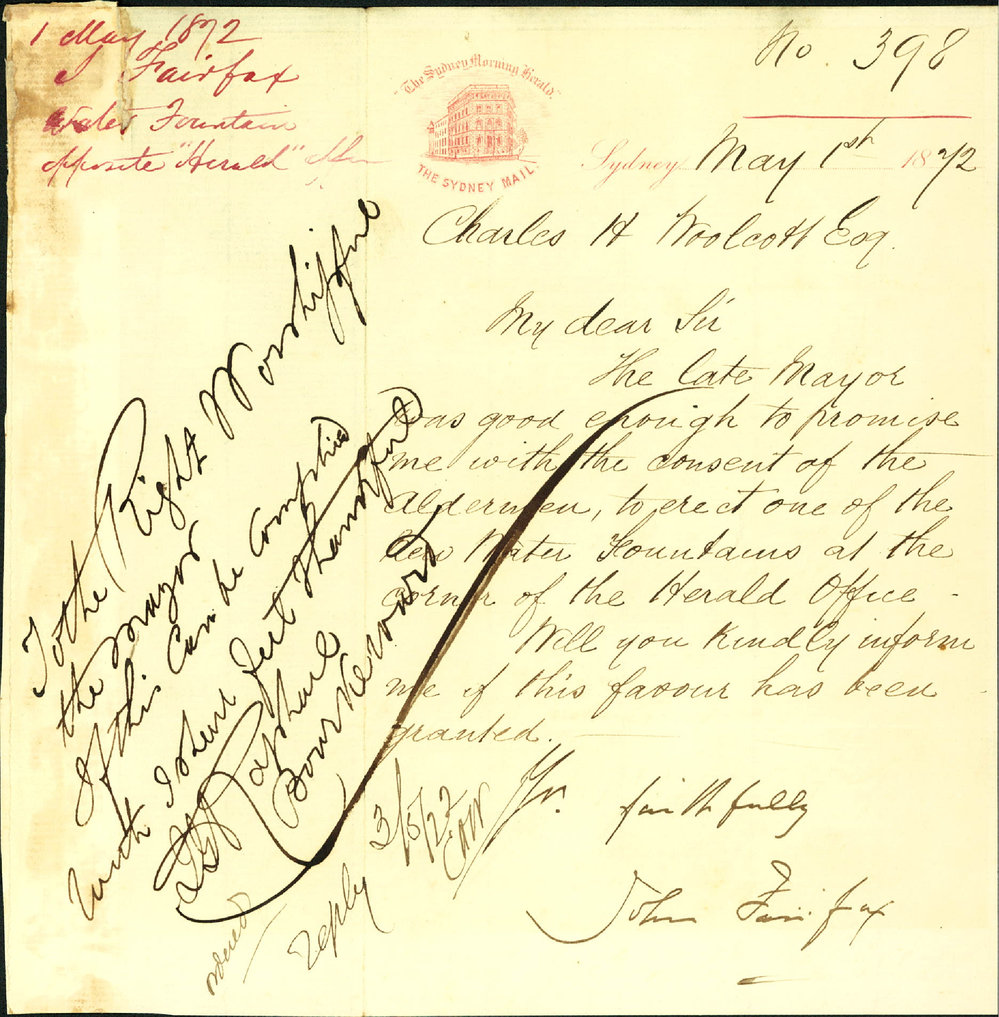 1 May 1872
J Fairfax
Water Fountain
opposite "Herald"
No. 398
"The Sydney Morning Herald."
THE SYDNEY MAIL.
Sydney May 1st 1872
Charles H Woolcott Esq.
My dear Sir
The late Mayor
was good enough to promise
me with the consent of the
Aldermen, to erect one of the
new Water Fountains at the
corner of the Herald Office -
Will you kindly inform
me if this favour has been
granted. —
Yrs. faithfully
John Fairfax
To the Right Worshipful
the Mayor
If this Can be Complied
with I shall feel thankful
Raphael
Bourke Ward
ordered
Reply 3/5/72
CHW